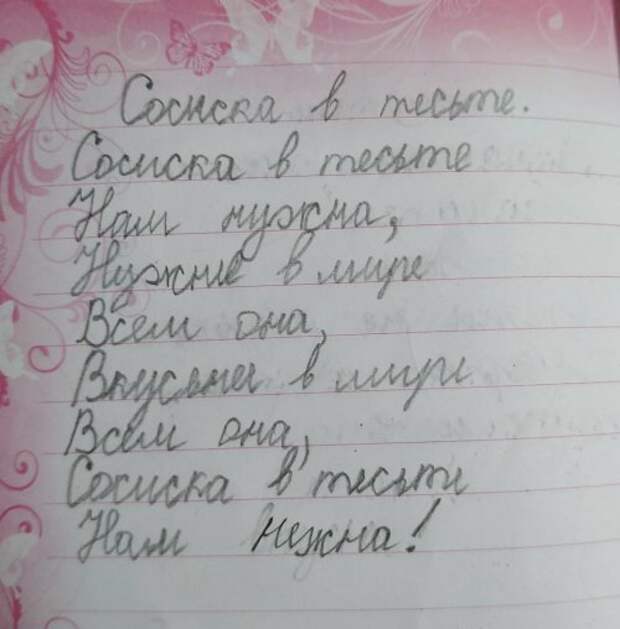 Сосиска в тесьте.
Сосиска в тесьте
Нам нужна,
Нужне в мире
Всем она,
Вкусьней в мире
Всем она,
Сосиска в тесьте
Нам нежна!